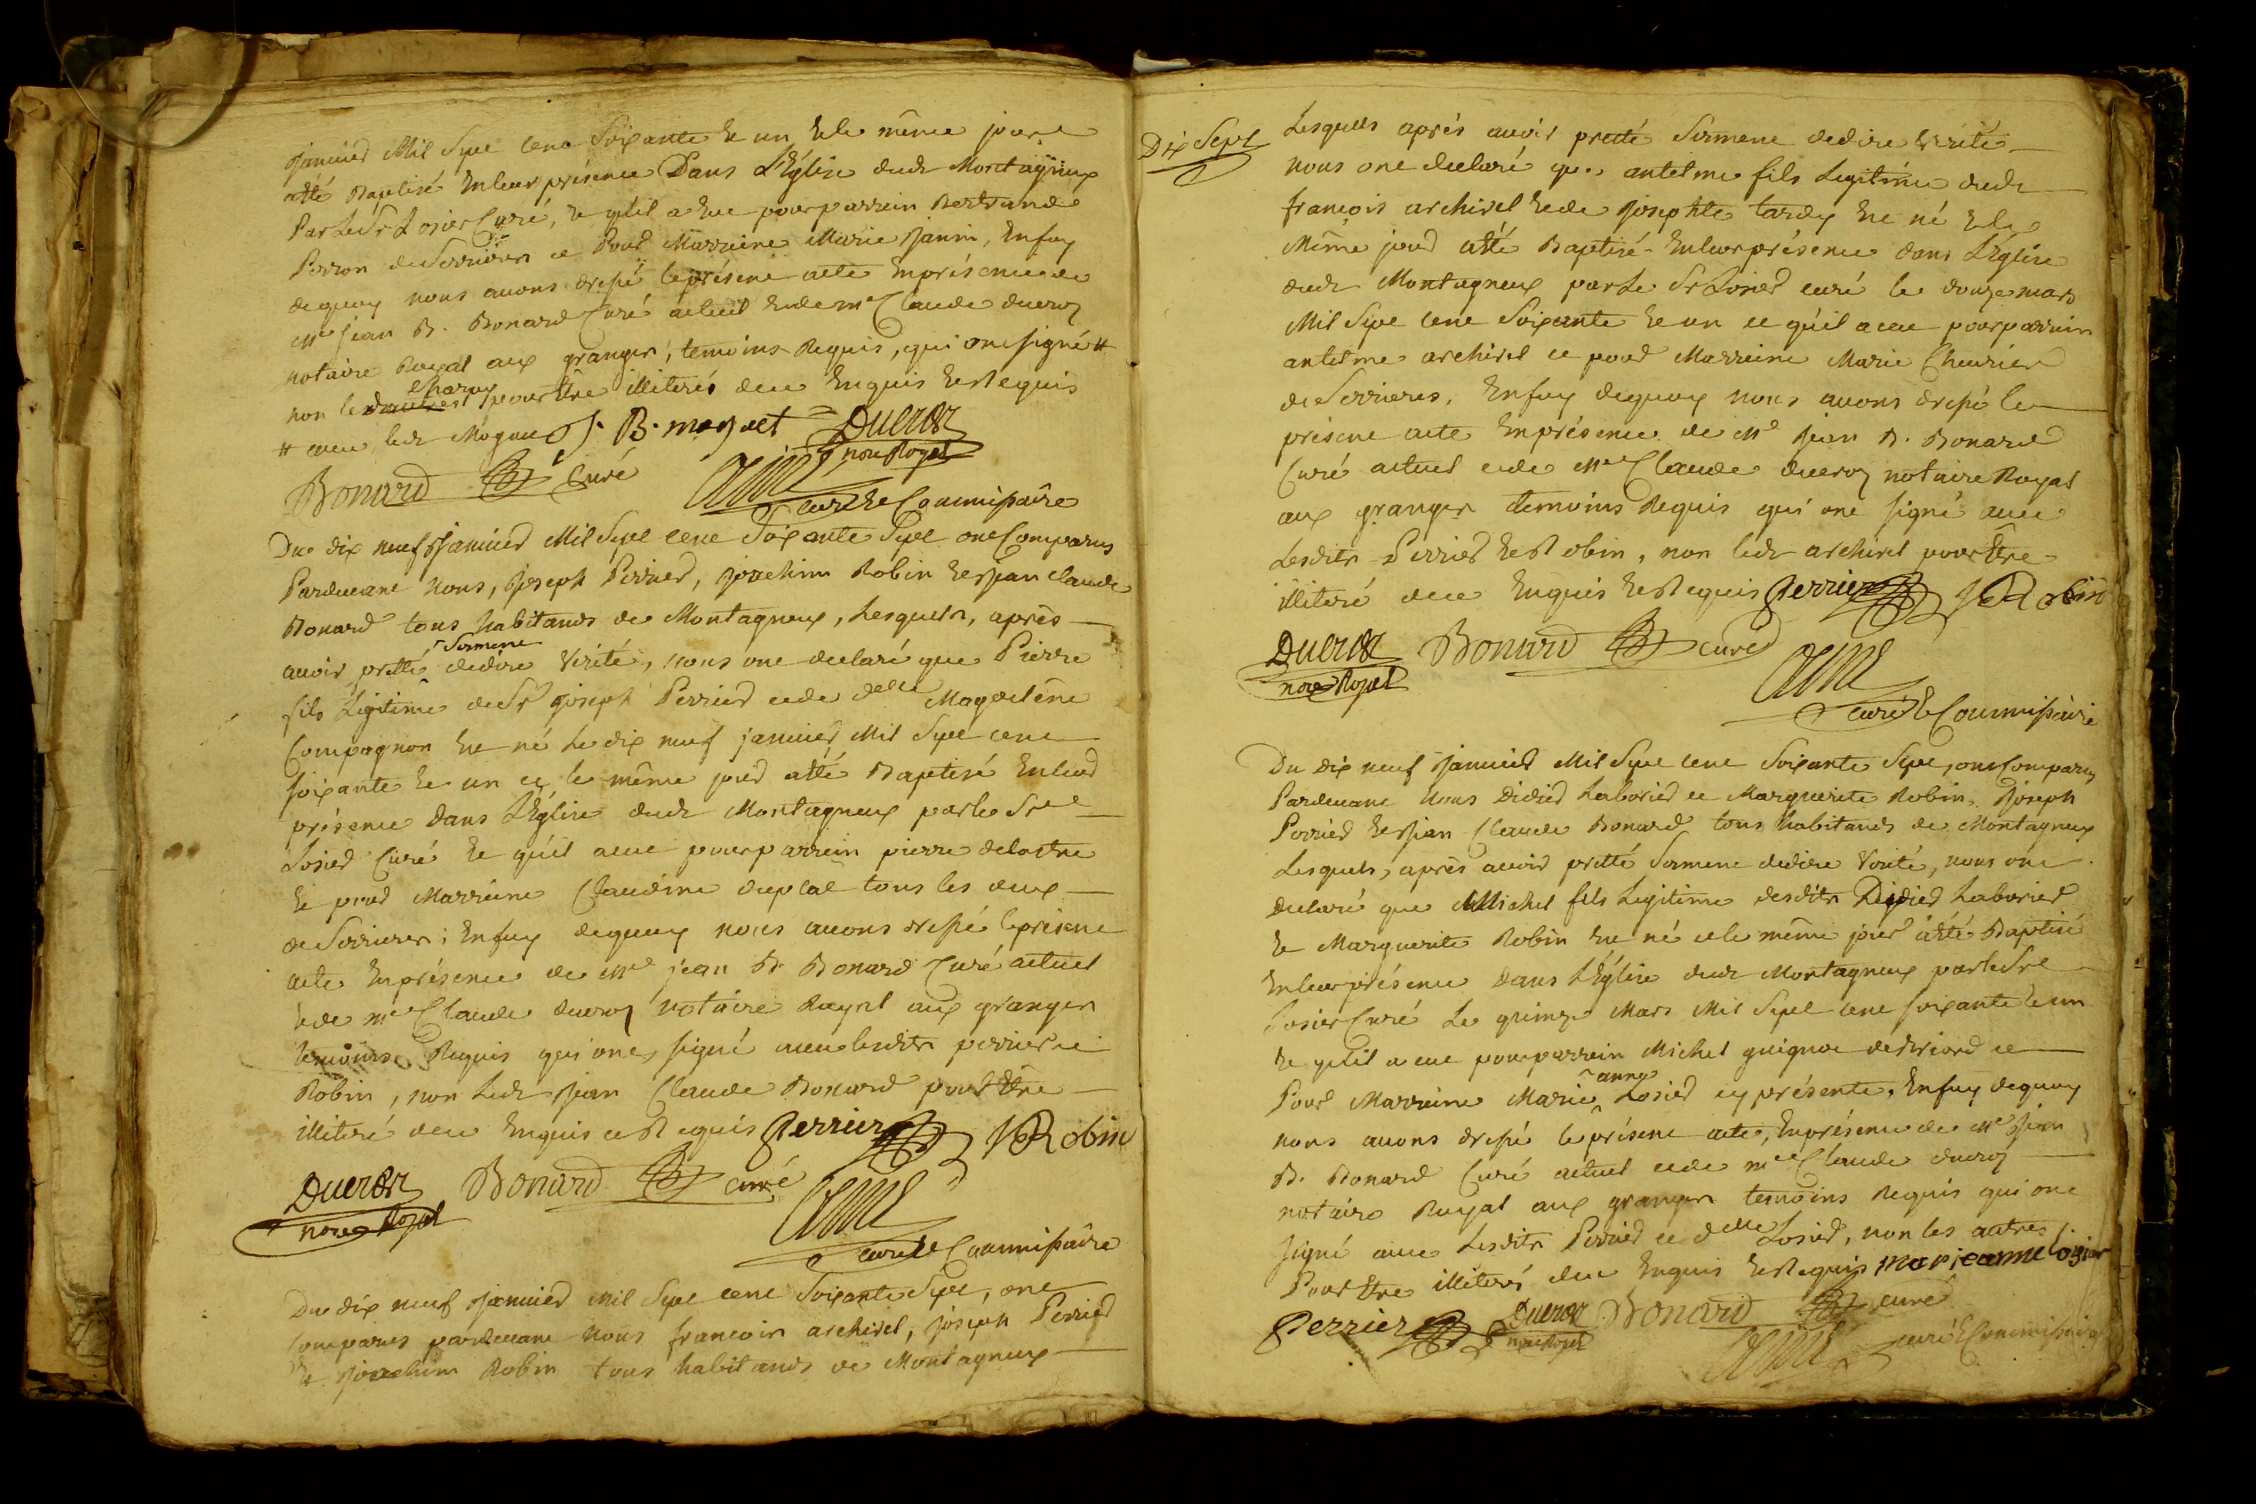 janvier Mil Sept cent Soixante et un et le même jour
a été Baptisé En leur présence Dans L'Eglise dudt Montagneux
Par Le Sr Losier Curé, et qu'il a Eue pour parrein Bertrand
Perron de Serrieres et Pour Marreine Marie Janin, En foy
de quoy nous avons dressé le présent acte En présence de
Mre jean B. Bonard Curé actuel et de me Claude ducros
notaire Royal aux granges, temoins Requis, qui ont signé #
non le pour Être illiterés de ce Enquis et Requis
# avec ledt Moguet J. B. moguet Ducros
Bonard Curé note Royal
curé et Commissaire
Du dix neuf Janvier Mil Sept cent Soixante Sept ont Comparus
Pardevant Nous, Joseph Perrier, joachim Robin et Jean claude
Bonard tous habitants de Montagneux, Lesquels, après
avoir pretté Serment de dire Verité, nous ont declaré que Pierre
fils Légitime de Sr joseph Perrier et de delle Magdelêne
Compagnon Est né Le dix neuf janvier Mil Sept cent
soixante et un et le même jour a été Baptisé En leur
présence Dans L'Église dudt Montagneux par le Sr
Losier Curé et qu'il a eue pour parrein pierre delastre
et pour Marreine Claudine duplat tous les deux
de Serrieres; En foy de quoy nous avons dressé le présent
acte En présence de Mre jean B. Bonard Curé actuel
et de me Claude ducros notaire Royal aux granges
temoins Requis qui ont signé avec lesdits perrier et
Robin, non Ledt Jean Claude Bonard pour Être
illiteré de ce Enquis et Requis Perrier J Robin
Ducros Bonard curé
note Royal
curé et Commissaire
Du dix neuf Janvier Mil Sept cent Soixante Sept, ont
comparus pardevant Nous francois archirel, joseph Perrier
et Joachim Robin tous habitants de Montagneux
Dix Sept
Lesquels après avoir pretté Serment de dire Verité
nous ont declaré que antelme fils Legitime dudt
francois archirel et de Josephte tardy Est né et le
Même jour a été Baptisé En leur présence dans L'Église
dudt Montagneux par Le Sr Losier curé le douze mars
Mil Sept cent Soixante et un et qu'il a eue pour parrein
antelme archirel et pour Marreine Marie Chevrier
de Serrieres. En foy de quoy nous avons dressé le
présent acte En présence de Mre Jean B. Bonard
Curé actuel et de Me Claude ducros notaire Royal
aux granges temoins Requis qui ont signé avec
Lesdits Perrier et Robin, non ledt archirel pour Être
illiteré de ce Enquis et Requis Perrier J Robin
Ducros Bonard curé
note Royal
curé et Commissaire
Du dix neuf Janvier Mil Sept cent Soixante Sept, ont Comparus
Pardevant Nous Didier Laborier et Marguerite Robin, Joseph
Perrier et Jean Claude Bonard tous habitants de Montagneux
Lesquels, après avoir pretté Serment de dire Verité, nous ont
declaré que Michel fils Legitime desdits Didier Laborier
et Marguerite Robin Est né et le même jour a été Baptisé
En leur présence Dans L'Église dudt Montagneux par le Sr
Losier Curé Le quinze Mars Mil Sept cent soixante et un
et qu'il a eue pour parrein Michel guignot de Briord et
Pour Marreine Marie anne Losier icy présente, En foy de quoy
nous avons dressé le présent acte, En présence de Mre Jean
B. Bonard Curé actuel et de me Claude ducros
notaire Royal aux granges temoins Requis qui ont
signé avec Lesdits Perrier et delle Losier, non les autres
Pour Être illiterés de ce Enquis et Requis marieanne losier
Perrier Ducros Bonard curé
note Royal curé et Commissaire